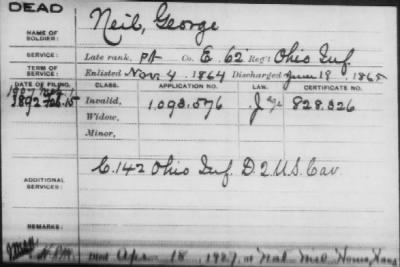 DEAD
NAME OF SOLDIER: Neib, George
SERVICE: Late rank, Pt Co. E. 62 Reg't Ohio Inf.
TERM OF SERVICE: Enlisted Nov. 4 1864 Discharged June 19, 1865
DATE OF FILING. CLASS. APPLICATION NO. LAW. CERTIFICATE NO.
1892 Feb. 15 Invalid, 1.093.576 J 828.326
Widow,
Minor,
ADDITIONAL SERVICES: C. 142 Ohio Inf. D 2 U.S. Cav
REMARKS:
Died Apr. 18, 1927, at Nat Mil Home, Kans